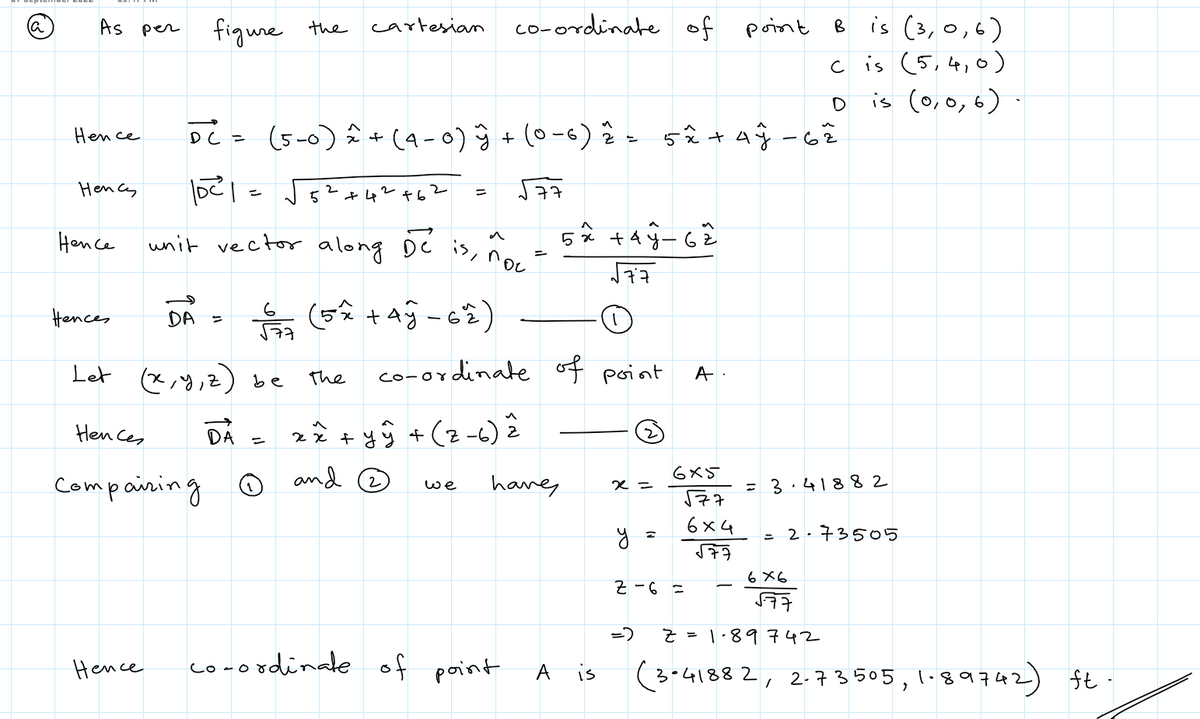 (a) As per figure the cartesian co-ordinate of point B is (3, 0, 6)
C is (5, 4, 0)
D is (0, 0, 6) .
Hence $\overrightarrow{DC}$ = (5-0) x̂ + (4-0) ŷ + (0-6) ẑ = 5x̂ + 4ŷ - 6ẑ
Hence, |$\overrightarrow{DC}$| = √(5² + 4² + 6²) = √77
Hence unit vector along $\overrightarrow{DC}$ is, n̂_DC = (5x̂ + 4ŷ - 6ẑ)/√77
Hence, $\overrightarrow{DA}$ = 6/√77 (5x̂ + 4ŷ - 6ẑ) —— ①
Let (x, y, z) be the co-ordinate of point A .
Hence, $\overrightarrow{DA}$ = x x̂ + y ŷ + (z-6) ẑ —— ②
Compairing ① and ② we have, x = 6×5/√77 = 3.41882
y = 6×4/√77 = 2.73505
z-6 = - 6×6/√77
=> z = 1.89742
Hence co-ordinate of point A is (3.41882, 2.73505, 1.89742) ft .